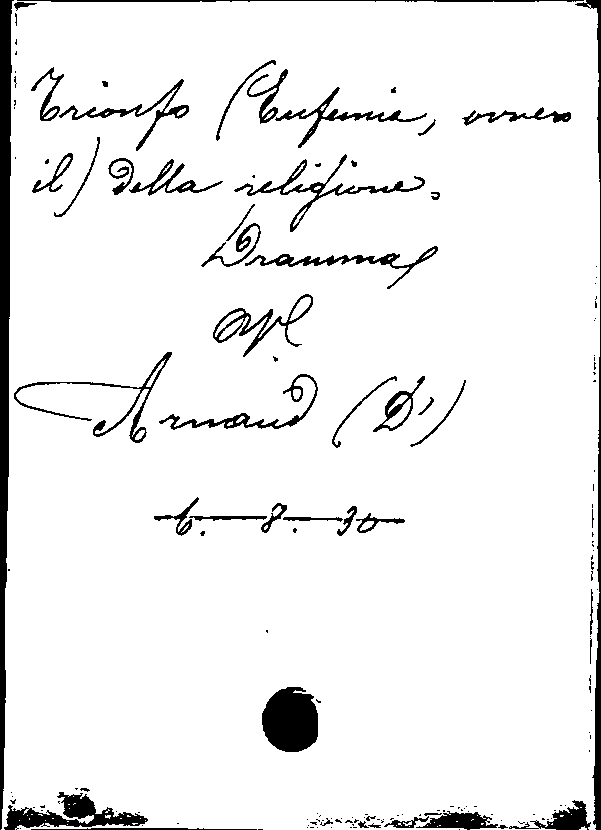 Trionfo (Eufemia, ovvero
il) della religione.
Dramma
Arnaud (D')
6. 8. 30